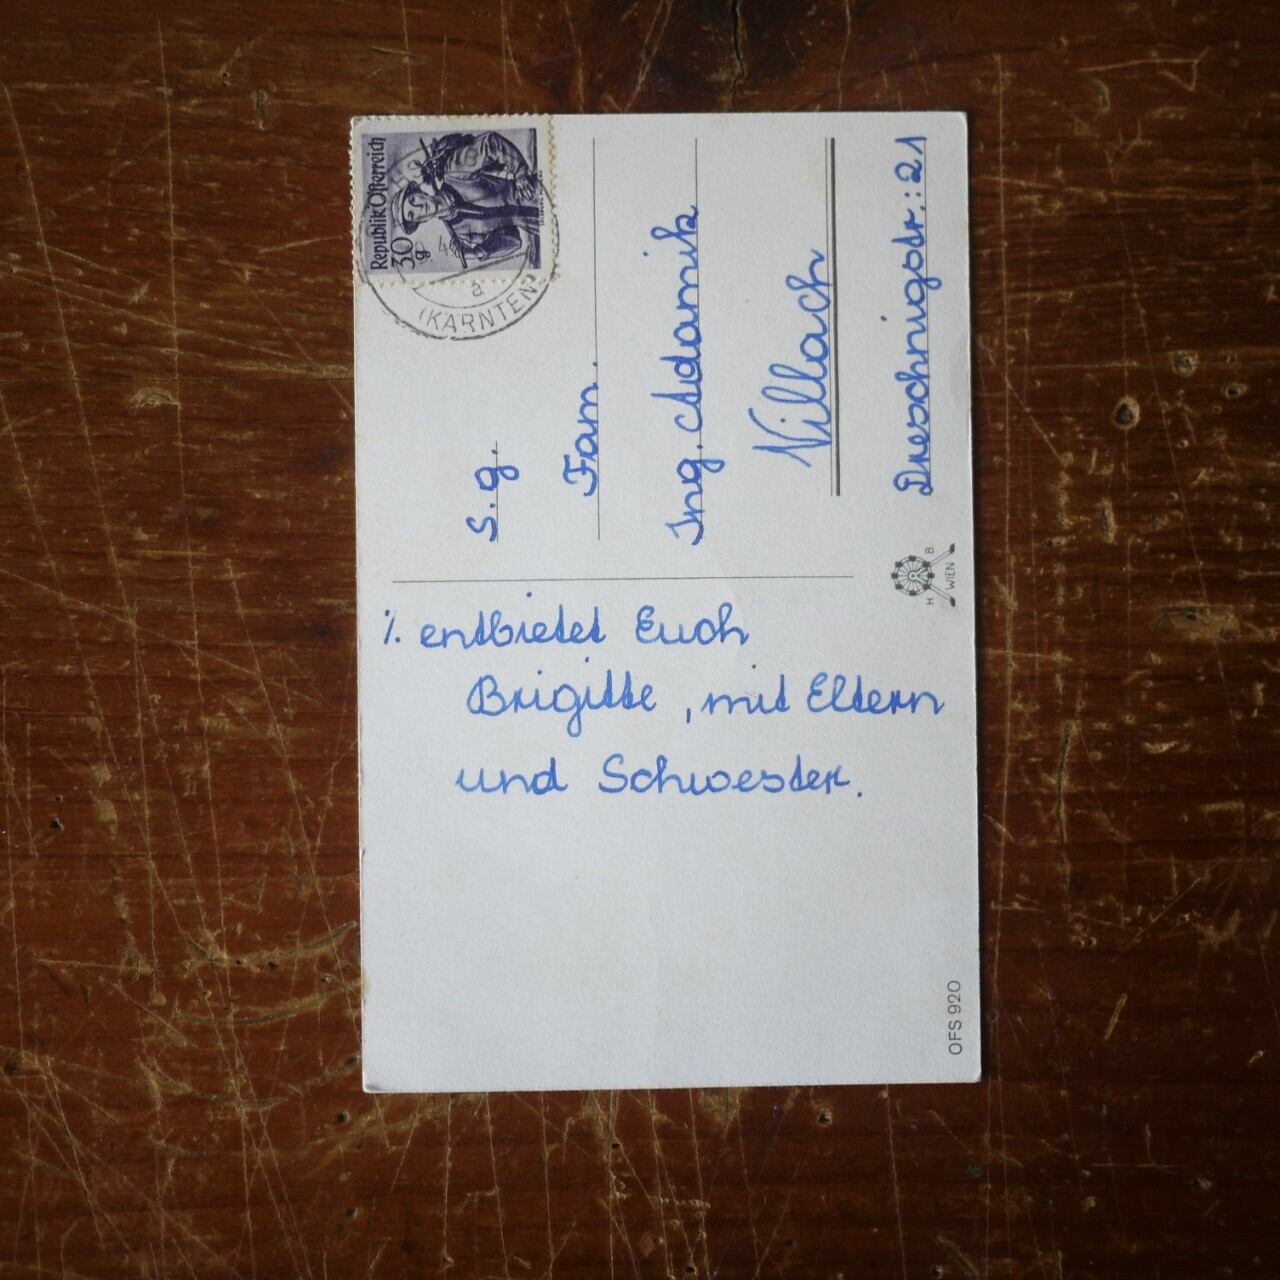 Republik Österreich
30
g
(KÄRNTEN)
a
S.g.
Fam.
Ing. Adamik
Villach
Dreschnigstr.: 21
H B.
WIEN
·/. entbietet Euch
Brigitte, mit Eltern
und Schwester.
OFS 920